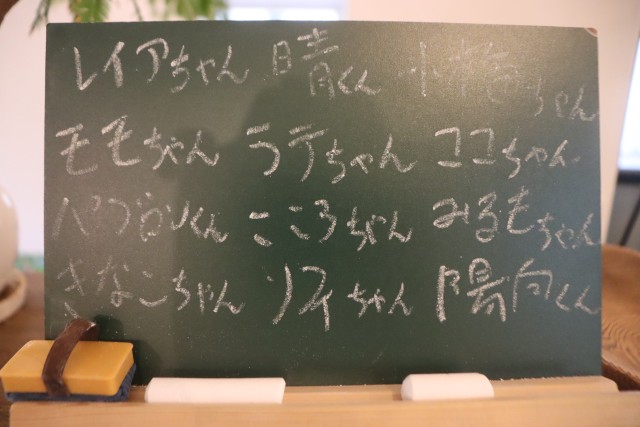 レイアちゃん 晴くん 小梅ちゃん
モモちゃん ラテちゃん ココちゃん
パブロンくん こころちゃん みるもちゃん
きなこちゃん ソフィちゃん 陽向くん